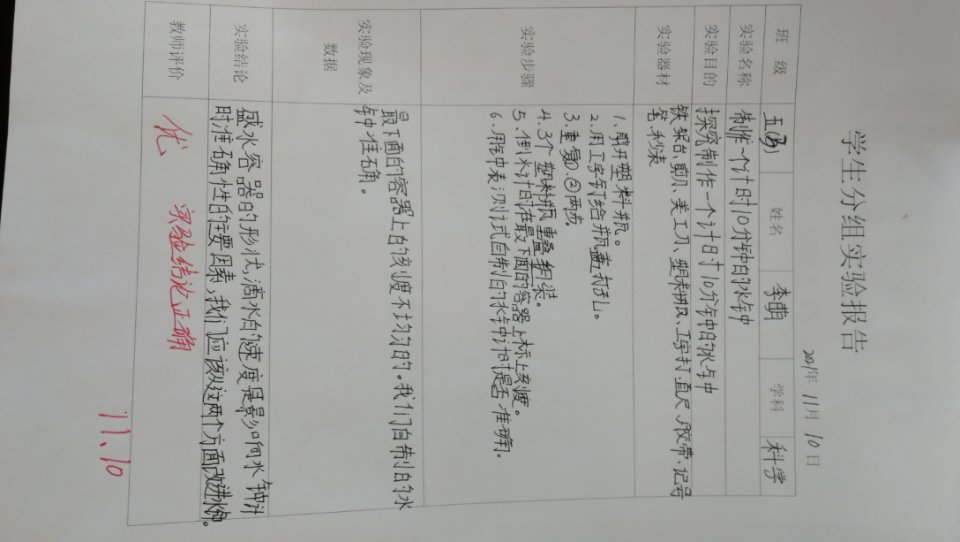 学生分组实验报告
2021年 11月 10日
班级 五(3) 姓名 李萌 学科 科学
实验名称 制作一个计时10分钟的水钟
实验目的 探究制作一个计时10分钟的水钟
实验器材 铁架台、剪刀、美工刀、塑料瓶、工字钉、直尺、胶带、记号
笔、秒表
实验步骤
1.剪开塑料瓶。
2.用工字钉给瓶盖打孔。
3.重复①、②两步
4.3个塑料瓶重叠组装。
5、倒水计时在最下面的容器上标上刻度。
6、用钟表测试自制的水钟计时是否准确。
实验现象及
数据
最下面的容器上的刻度不均匀的。我们自制的水
钟准确。
实验结论
盛水容器的形状,滴水的速度是影响水钟计
时准确性的主要因素,我们应该从这两个方面改进水钟。
教师评价 优 实验结论正确
11、10